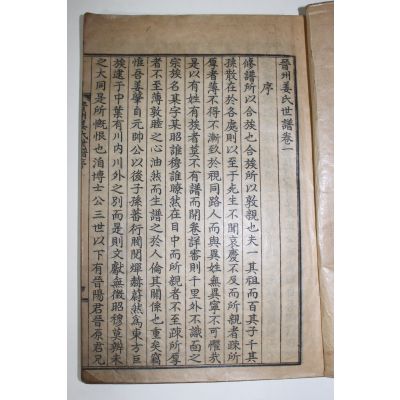 晉州姜氏世譜卷一
序
修譜所以合族也合族所以敦親也夫一其祖而百其子千其
孫散在於各處則以至于死生不聞哀慶不及而所親者疎所
厚者薄不得不漸致於視同路人而與異姓無異寧不可懼哉
是以有姓有族者莫不有譜而開卷詳審則千里外不識面之
宗族名某字某昭誰穆誰瞭然在目中而所親者不至疎所厚
者不至薄敦睦之心油然而生譜之於人倫其關係也重矣竊
惟吾姜肇自元帥公以後子孫蕃衍閥閱燀赫蔚然為東方巨
族逮于中葉有川內川外之別而是則文獻無徵昭穆莫辨未
之大同是所慨恨也洎博士公三世以下有晉陽君晉原君兄